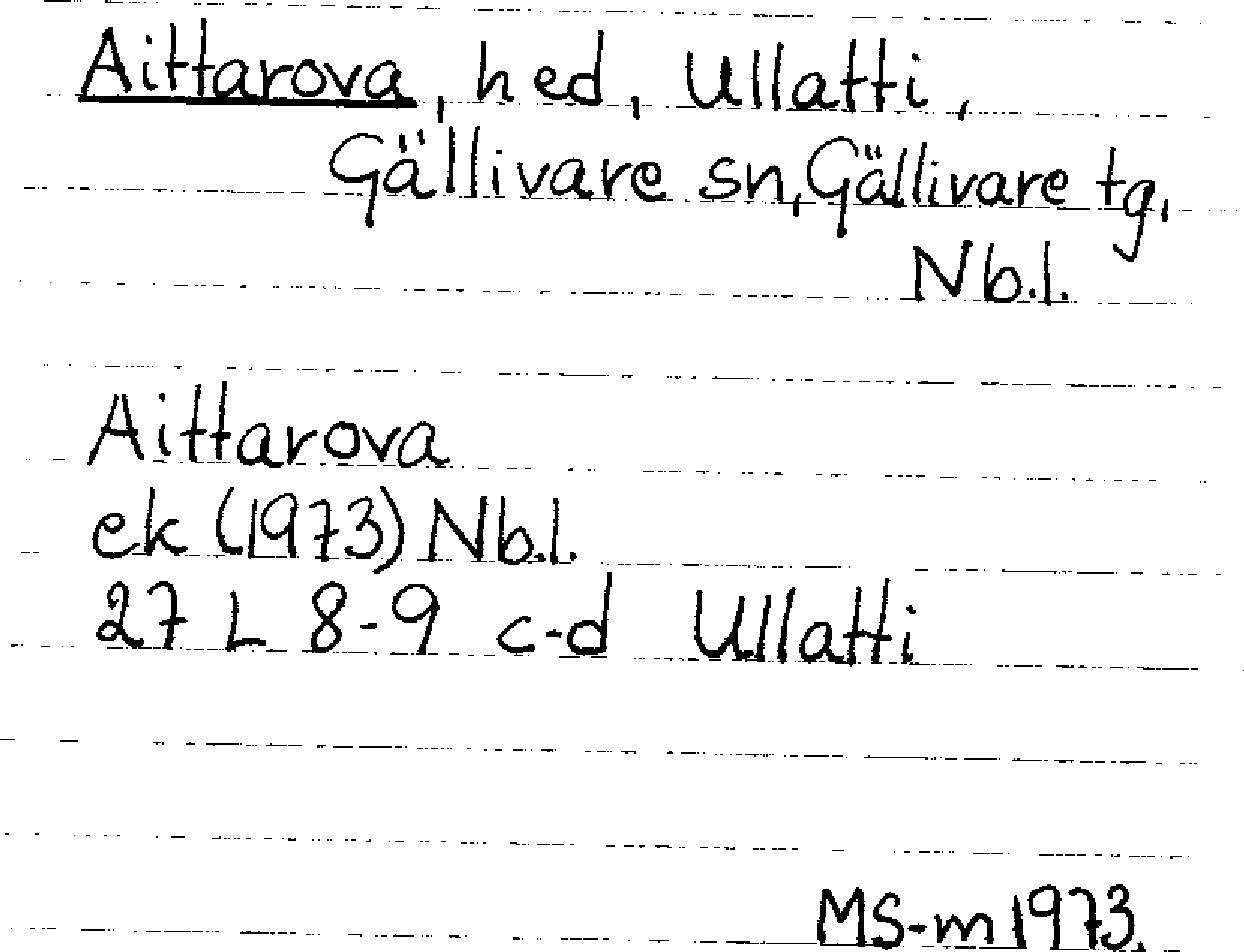 Aittarova, hed, Ullatti,
Gällivare sn, Gällivare tg,
Nb.l.
Aittarova
ek (1973) Nb.l.
27 L 8-9 c-d Ullatti
MS-m 1973.